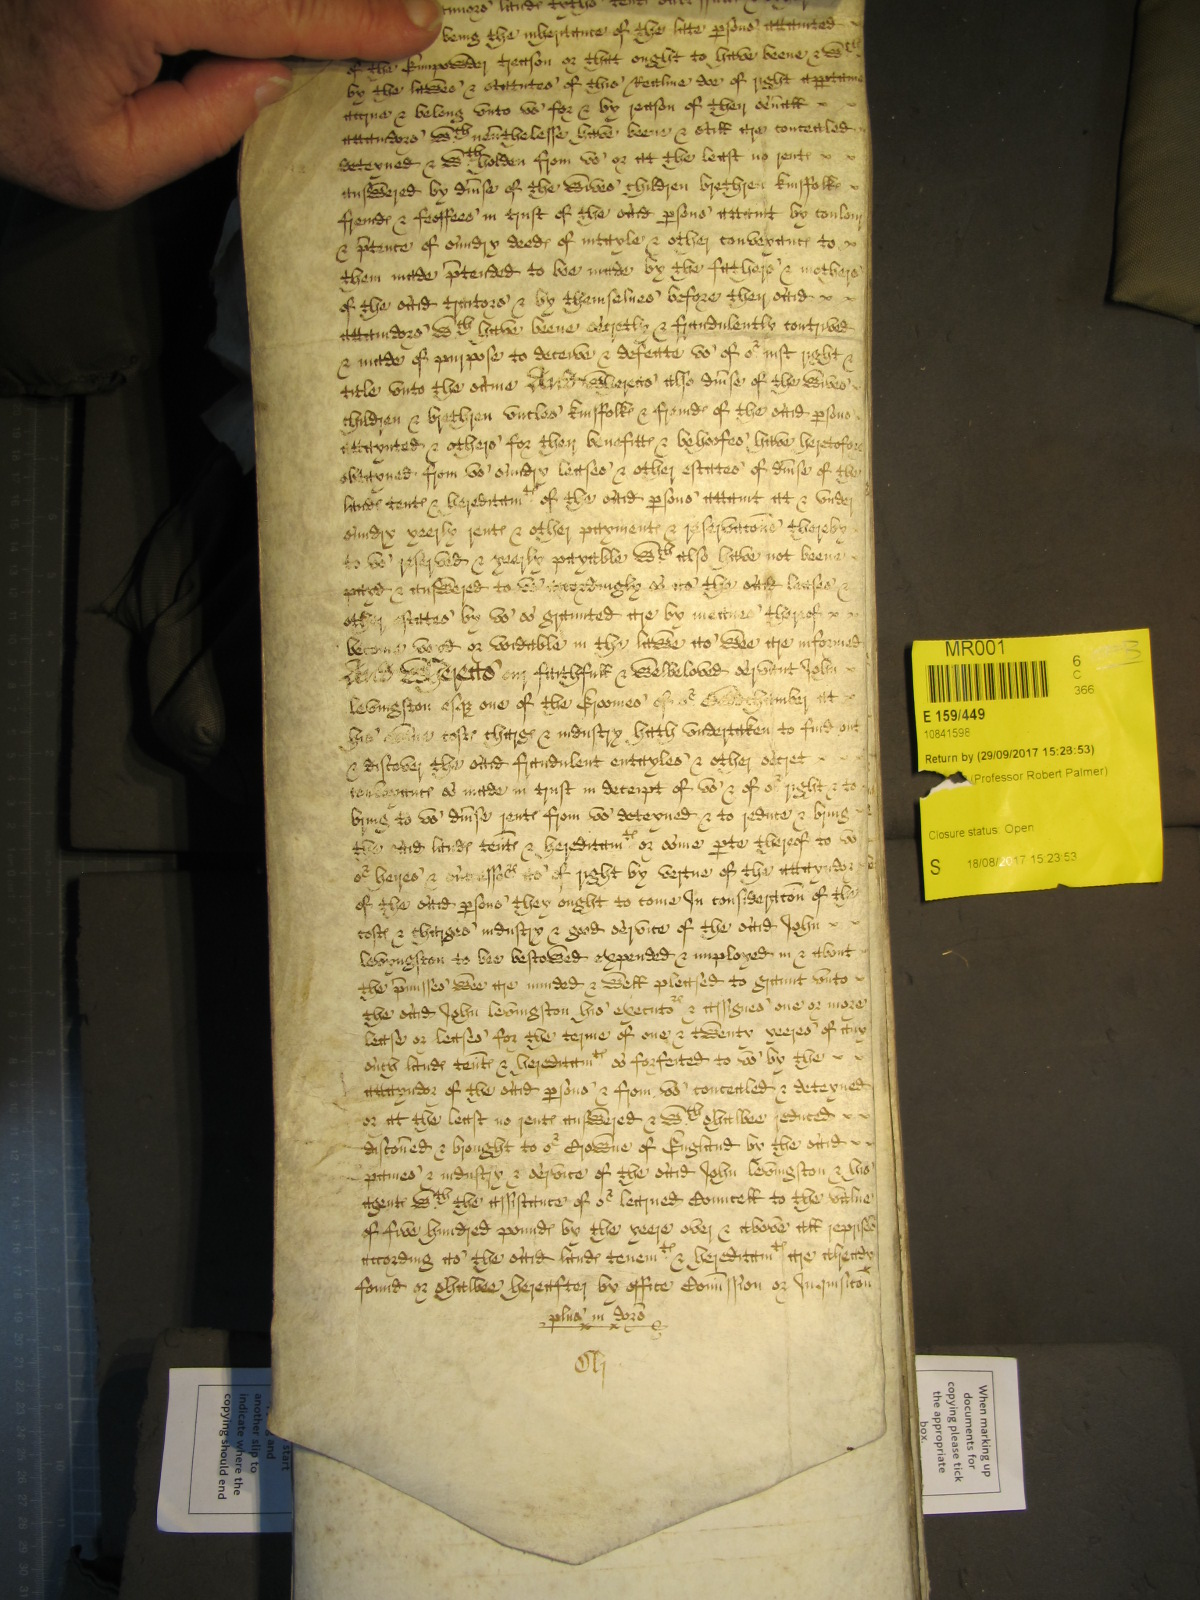 being the inheritance of the late psons attainted
of the Gunpowder treason or that ought to have beene & wch
by the lawes & statutes of this Realme doe of right apptaine
& belong unto us for & by reason of their seuall
attaindors wch neuthelesse have beene & still are concealed
deteyned & wthholden from us or at the least no rent
answered by diuse of the wives children brethren kinsfolk
frends & feoffees in trust of the said psons attaint by coulour
& ptence of sundry deeds of intayle & other conveyances to
them made ptended to bee made by the fathers & mothers
of the said traitors & by themselues before their said
attaindors wch have beene secretly & fraudulently contrived
& made of purpose to deceive & defeate us of or iust right &
title unto the same And Whereas also diuse of the wives
children & brethren uncles kinsfolk & frends of the said psons
attaynted & others for their benefitts & behoofes have heretofore
obtayned from us sundry leases & other estates of diuse of the
lands tents & hereditamts of the said psons attaint at & under
sundry yeerly rents & other payments & reservacons thereby
to us reserved & yeerly payable wch also have not beene
payd & answered to us accordingly so as the said leases &
other estates by us so graunted are by meanes thereof
become voyd or voidable in the lawe as wee are informed
And Whereas our faithfull & welbeloved servant John
Levingston esqr one of the Groomes of or Bedchamber at
his owne costs charges & industry hath undertaken to find out
& discover the said fraudulent entayles & other secret
conveyances so made in trust in deceipt of us & of or right & to
bring to us diuse rents from us deteyned & to reduce & bring
the said lands tents & hereditamts or some pte thereof to us
or heires & successors as of right by vertue of the attayndor
of the said psons they ought to come In consideracon of the
costs & charges industry & good service of the said John
Levyngston to bee bestowed expended & imployed in & about
the pmisses wee are minded & well pleased to graunt unto
the said John Levingston his executors & assignes one or more
lease or leases for the terme of one & twenty yeeres of any
such lands tents & hereditamts so forfeited to us by the
attayndor of the said psons & from us concealed & deteyned
or at the least no rents answered & wch shalbee reduced
discoued & brought to or Crowne of England by the said
paines & industry & service of the said John Levingston & his
agents wth the assistance of or learned Councell to the value
of five hundred pounds by the yeere over & above all reprises
according as the said lands tenemts & hereditamts are already
found or shalbee hereafter by office Comission or Inquisicon
plus in dorso
MR001
6
C
366
E 159/449
10841598
Return by (29/09/2017 15:28:53)
(Professor Robert Palmer)
Closure status: Open
S 18/08/2017 15:23:53
When marking up
documents for
copying please tick
the appropriate
box.
start
and
another slip to
indicate where the
copying should end